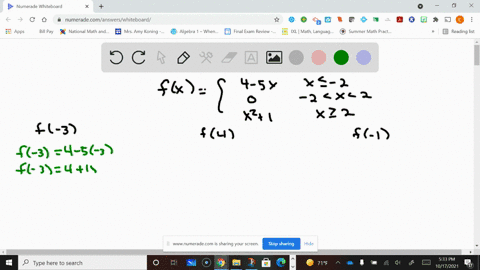 Numerade Whiteboard
numerade.com/answers/whiteboard/
Apps
Bill Pay
National Math and...
Mrs. Amy Koning -...
Algebra 1 – When...
Final Exam Review -...
Reading list
f(x) = { 4-5x x ≤ -2
0 -2 < x < 2
x²+1 x ≥ 2
f(-3) f(4) f(-1)
f(-3) = 4-5(-3)
f(-3) = 4+1
www.numerade.com is sharing your screen.
Stop sharing
Hide
Type here to search
71°F
5:33 PM
10/17/2021